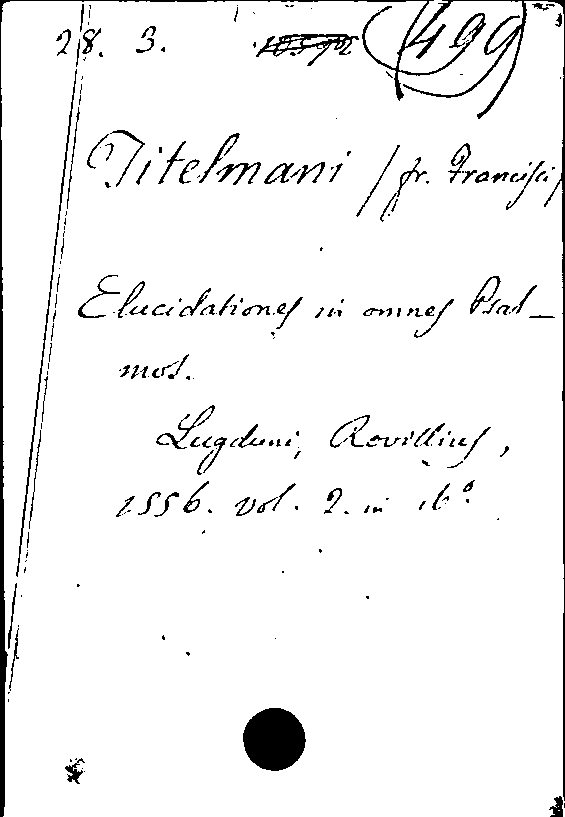 28. 3. (499)
Titelmani /fr. Francisci/
Elucidationes in omnes Psal-
mos.
Lugduni, Rovillius,
1556. vol. 2. in 16º.